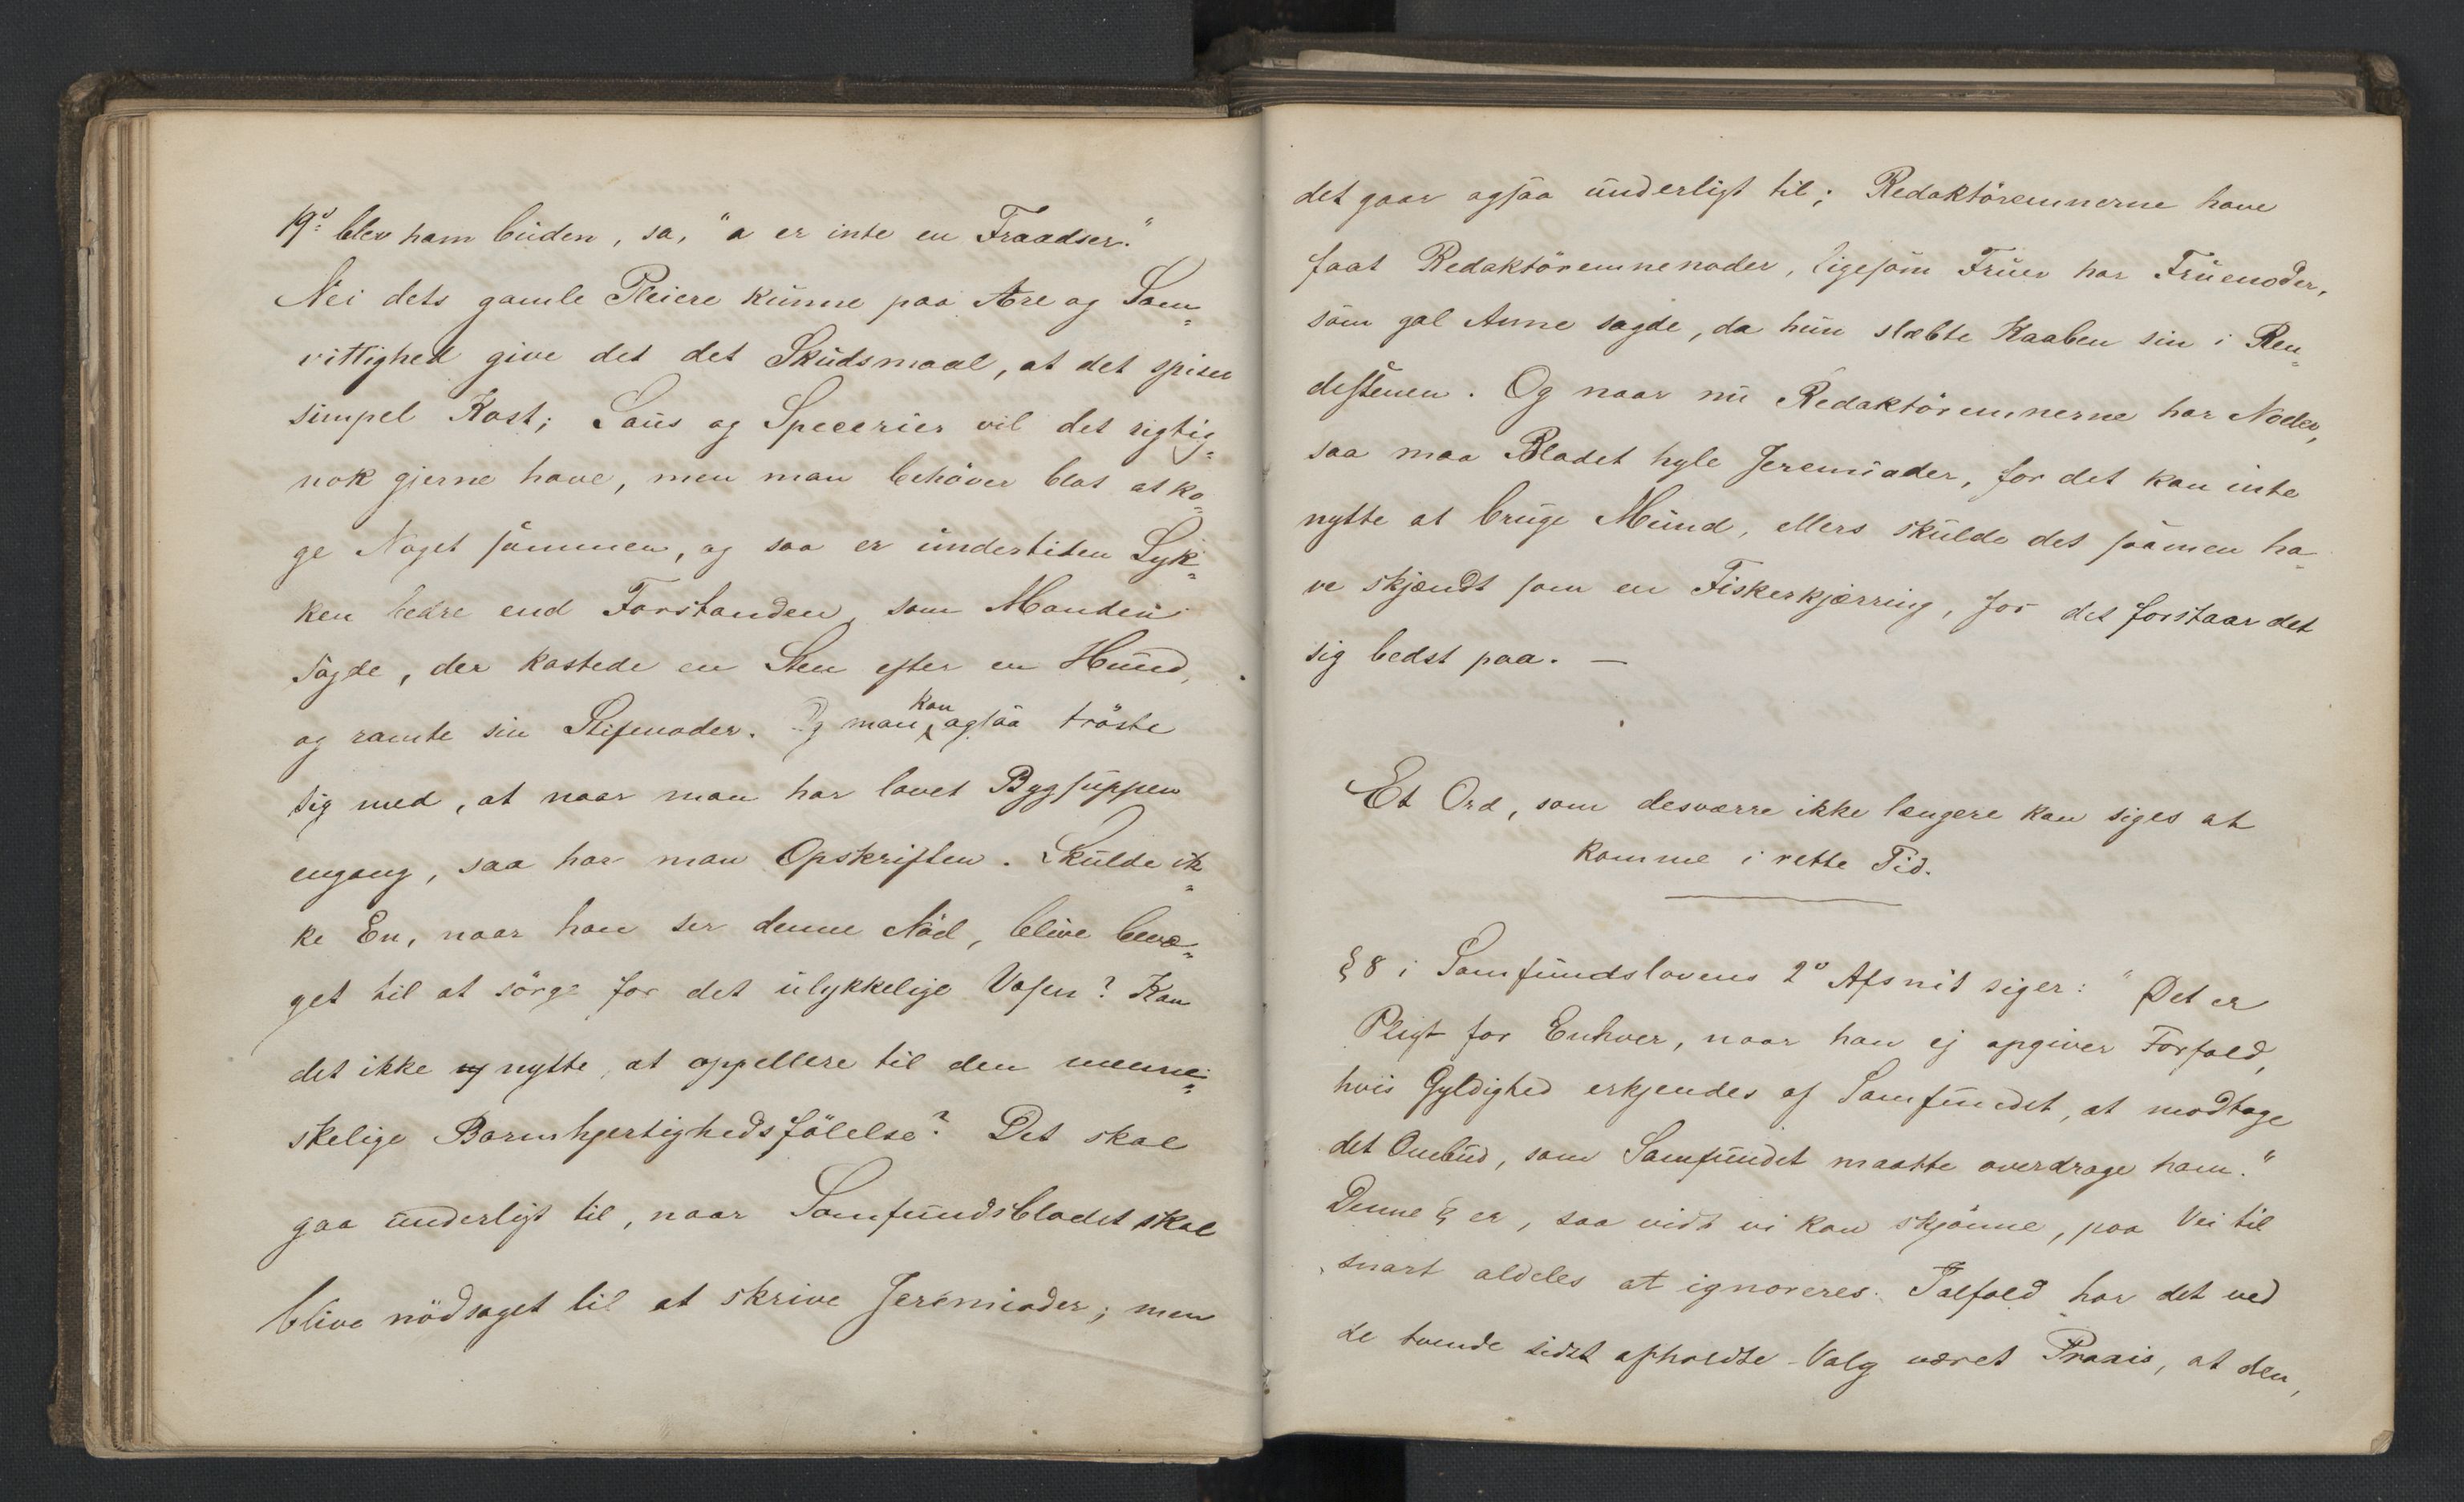 19de blev ham buden, sa, "a er inte en Fraadser."
Nei dets gamle Pleiere kunne paa Ære og Sam-
vittighed give det det Skudsmaal, at det spiser
simpel Kost; Saus og Specerier vil det rigtig-
nok gjerne have, men man behöver blot at ko-
ge Noget sammen, og saa er undertiden Lyk-
ken bedre end Forstanden, som Manden
sagde, der kastede en Sten efter en Hund,
og ramte sin Stifmoder. Og man kan ogsaa tröste
sig med, at naar man har lavet Bygsuppen
engang, saa har man Opskriften. Skulde ik-
ke En, naar han ser denne Nöd, blive bevæ-
get til at sörge for det ulykkelige Væsen? Kan
det ikke ny nytte, at appellere til den menne-
skelige Barmhjertighedsfölelse? Det skal
gaa underligt til, naar Samfundsbladet skal
blive nödsaget til at skrive Jeremiader; men
det gaar ogsaa underligt til; Redaktöremnerne have
faat Redaktöremnenoder, ligesom Fruer har Fruenoder,
som gal Anne sagde, da hun slæbte Kaaben sin i Ren-
destenen. Og naar nu Redaktöremnerne har Noder,
saa maa Bladet hyle Jeremiader, for det kan inte
nytte at bruge Mund, ellers skulde det saamen ha-
ve skjændt som en Fiskerkjærring, for det forstaar det
sig bedst paa. —
Et Ord, som desværre ikke længere kan siges at
komme i rette Tid.
§ 8 i Samfundslovens 2det Afsnit siger: "Det er
Pligt for Enhver, naar han ej opgiver Forfald,
hvis Gyldighed erkjendes af Samfundet, at modtage
det Ombud, som Samfundet maatte overdrage ham."
Denne § er, saa vidt vi kan skjönne, paa Vei til
snart aldeles at ignoreres. Ialfald har det ved
de tvende sidst afholdte Valg været Praxis, at den,